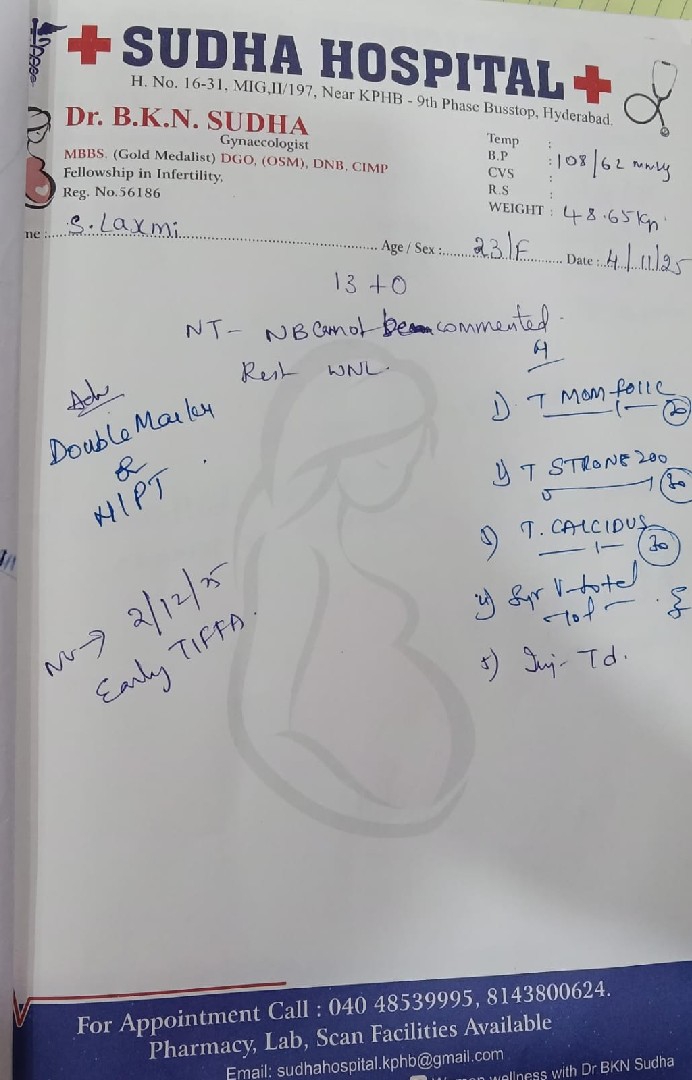 SUDHA HOSPITAL
H. No. 16-31, MIG,II/197, Near KPHB - 9th Phase Busstop, Hyderabad.
Dr. B.K.N. SUDHA
Gynaecologist
MBBS. (Gold Medalist) DGO, (OSM), DNB, CIMP
Fellowship in Infertility,
Reg. No.56186
Temp :
B.P : 108/62 mmHg
CVS :
R.S :
WEIGHT : 48.65 Kg
me : S. Laxmi Age / Sex : 23/F Date : 4/11/25
13 + 0
NT - NB cannot be commented.
Rest WNL.
Adv
Double Marker
&
HIPT
NV → 2/12/25
Early TIFFA.
1) T MOM folic 30
2) T STRONE 200 30
3) T. CALCIDUS 30
4) Syr V-total
5) Inj - Td.
For Appointment Call : 040 48539995, 8143800624.
Pharmacy, Lab, Scan Facilities Available
Email: sudhahospital.kphb@gmail.com
wellness with Dr BKN Sudha